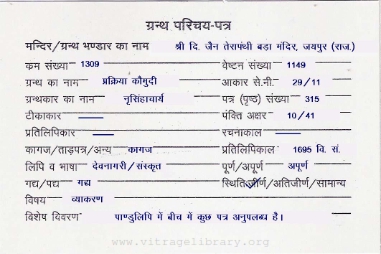 ग्रन्थ परिचय-पत्र
मन्दिर/ग्रन्थ भण्डार का नाम श्री दि. जैन तेरापंथी बड़ा मंदिर, जयपुर (राज.)
क्रम संख्या 1309 वेष्टन संख्या 1149
ग्रन्थ का नाम प्रक्रिया कौमुदी आकार से.मी. 29/11
ग्रन्थकार का नाम नृसिंहाचार्य पत्र (पृष्ठ) संख्या 315
टीकाकार पंक्ति अक्षर 10/41
प्रतिलिपिकार रचनाकाल
कागज/ताड़पत्र/अन्य कागज प्रतिलिपिकाल 1695 वि. सं.
लिपि व भाषा देवनागरी/संस्कृत पूर्ण/अपूर्ण अपूर्ण
गद्य/पद्य गद्य स्थिति जीर्ण/अतिजीर्ण/सामान्य
विषय व्याकरण
विशेष विवरण पाण्डुलिपि में बीच में कुछ पत्र अनुपलब्ध है।
www.vitragelibrary.org